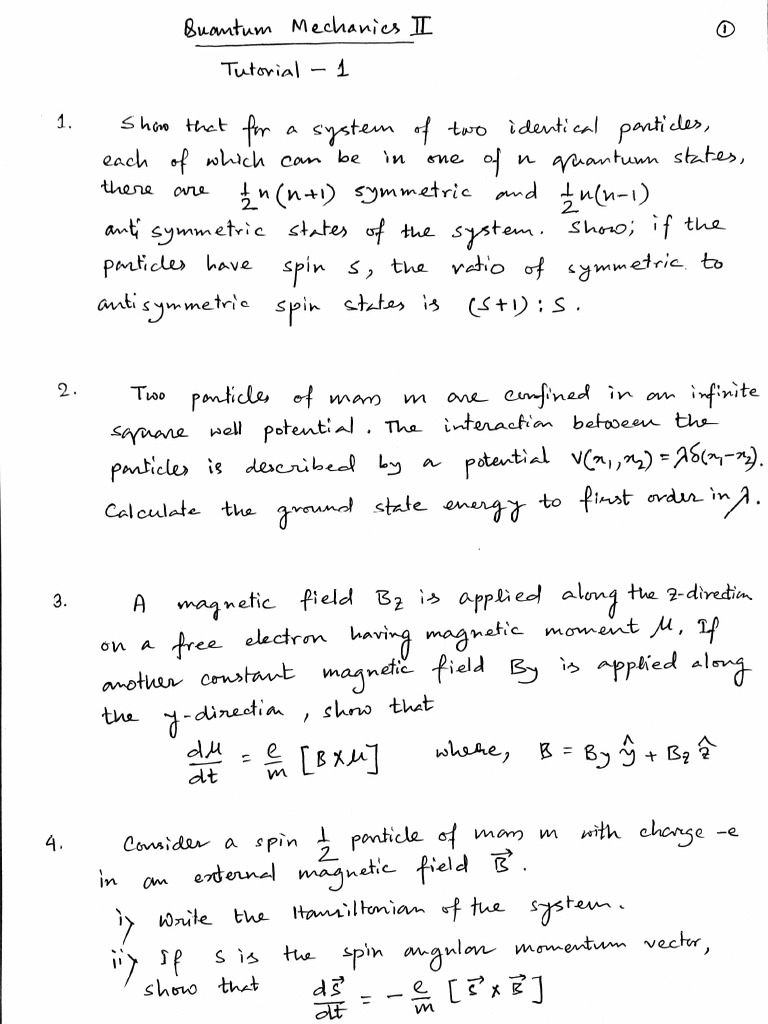 Quantum Mechanics II
①
Tutorial - 1
1. Show that for a system of two identical particles,
each of which can be in one of n quantum states,
there are 1/2 n(n+1) symmetric and 1/2 n(n-1)
anti symmetric states of the system. Show; if the
particles have spin s, the ratio of symmetric to
antisymmetric spin states is (s+1) : s.
2. Two particles of mass m are confined in an infinite
square well potential. The interaction between the
particles is described by a potential V(x₁, x₂) = λδ(x₁-x₂).
Calculate the ground state energy to first order in λ.
3. A magnetic field Bz is applied along the z-direction
on a free electron having magnetic moment μ. If
another constant magnetic field By is applied along
the y-direction, show that
dμ/dt = e/m [B×μ] where, B = By ŷ + Bz ẑ
4. Consider a spin 1/2 particle of mass m with charge -e
in an external magnetic field B⃗.
i) Write the Hamiltonian of the system.
ii) If S is the spin angular momentum vector,
show that dS⃗/dt = - e/m [S⃗ × B⃗]